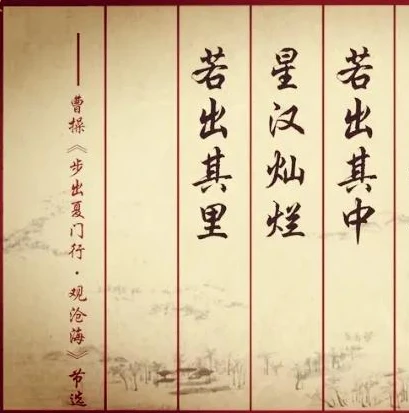 若出其中
星汉灿烂
若出其里
——曹操《步出夏门行·观沧海》节选